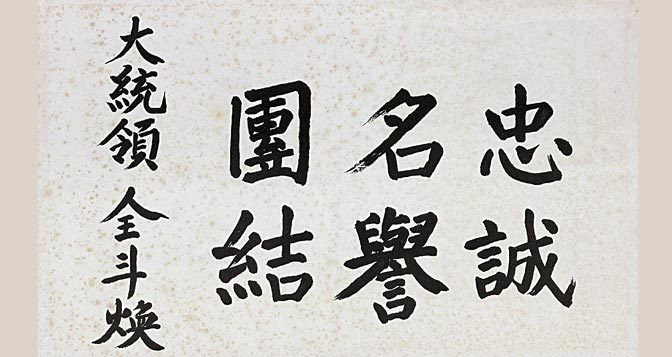 忠誠
名譽
團結
大統領 全斗煥